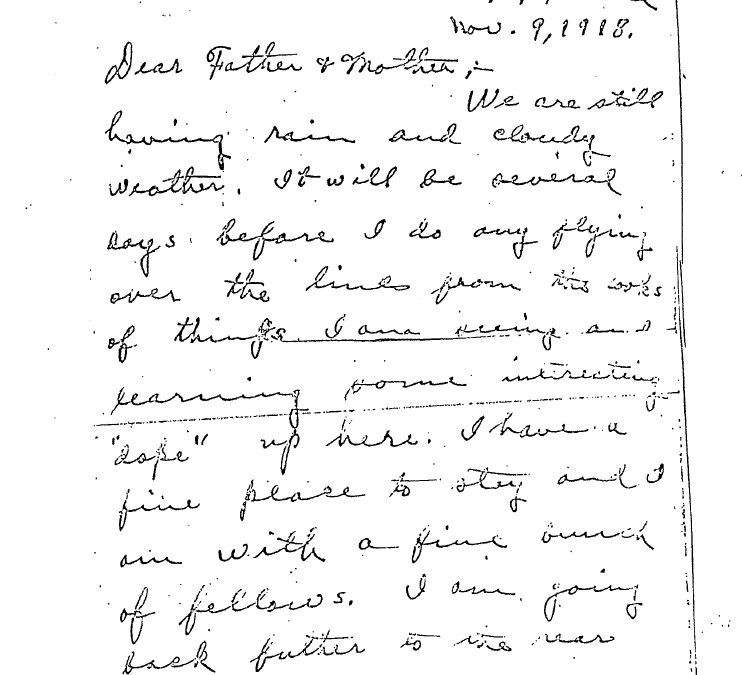 Nov. 9, 1918.
Dear Father & Mother,:-
We are still
having rain and cloudy
weather. It will be several
days before I do any flying
over the lines from the looks
of things. I am seeing and
learning some interesting
"dope" up here. I have a
fine place to stay and I
am with a fine bunch
of fellows. I am going
back futher to the rear